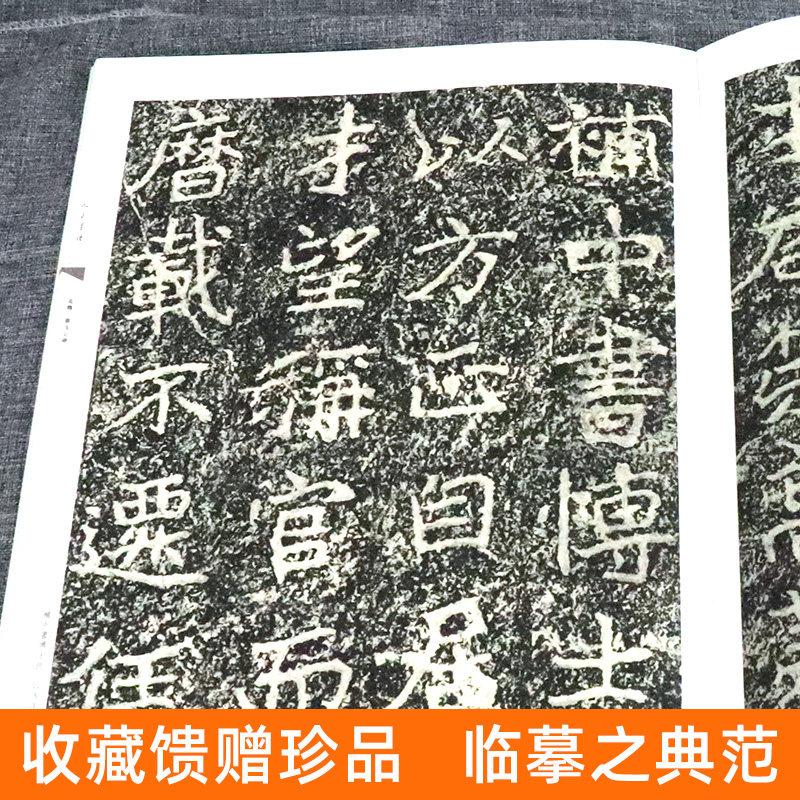 補中書愽士
以方正自居
才望稱官而
曆載不遷任
收藏馈赠珍品 临摹之典范